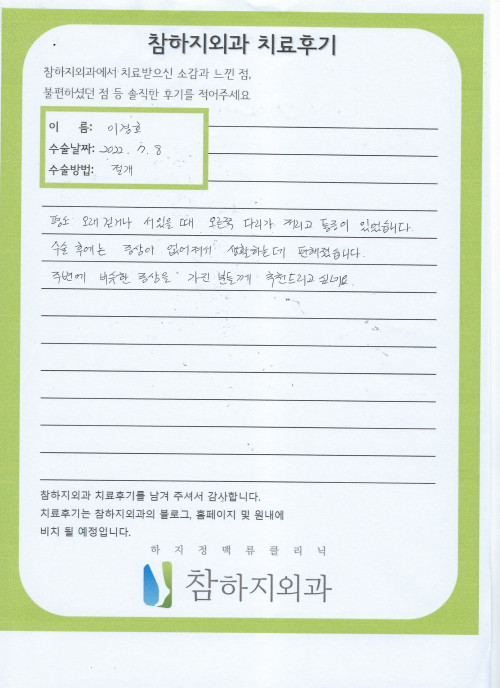 참하지외과 치료후기
참하지외과에서 치료받으신 소감과 느낀 점,
불편하셨던 점 등 솔직한 후기를 적어주세요
이 름: 이경호
수술날짜: 2022. 7. 8
수술방법: 절개
평소 오래 걷거나 서있을 때 오른쪽 다리가 저리고 통증이 있었습니다.
수술 후에는 증상이 없어져서 생활하는데 편해졌습니다.
주변에 비슷한 증상을 가진 분들께 추천드리고 싶네요.
참하지외과 치료후기를 남겨 주셔서 감사합니다.
치료후기는 참하지외과의 블로그, 홈페이지 및 원내에
비치 될 예정입니다.
하 지 정 맥 류 클 리 닉
참하지외과